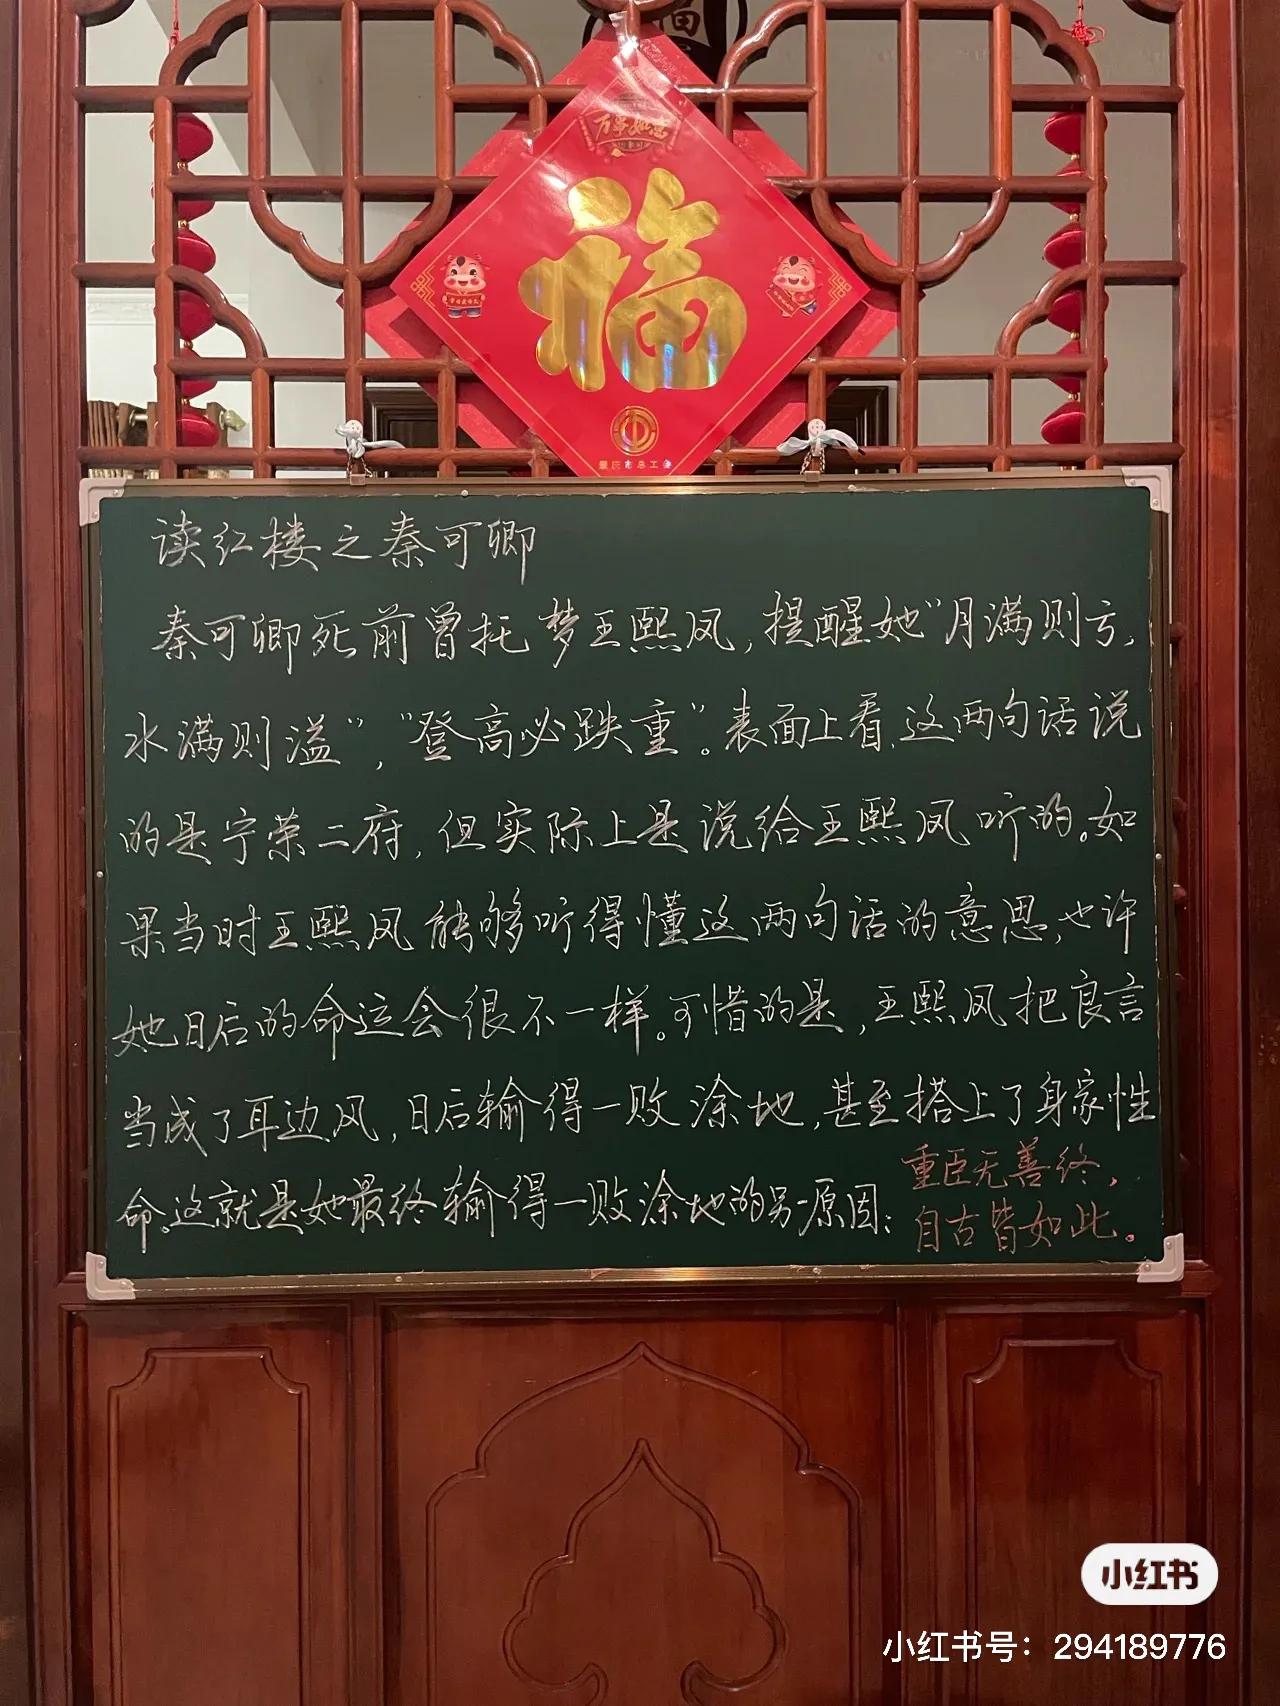 福
万事如意
福
肇庆市总工会
读红楼之秦可卿
秦可卿死前曾托梦王熙凤，提醒她“月满则亏，
水满则溢”，“登高必跌重”。表面上看，这两句话说
的是宁荣二府，但实际上是说给王熙凤听的。如
果当时王熙凤能够听得懂这两句话的意思，也许
她日后的命运会很不一样。可惜的是，王熙凤把良言
当成了耳边风，日后输得一败涂地，甚至搭上了身家性
命。这就是她最终输得一败涂地的另一原因：
重臣无善终，
自古皆如此。
小红书
小红书号：294189776